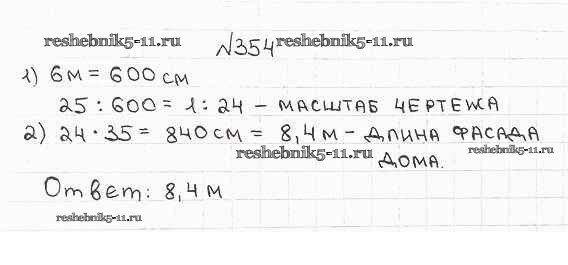 reshebnik5-11.ru
№354 reshebnik5-11.ru
1) 6м = 600 см
25 : 600 = 1 : 24 – МАСШТАБ ЧЕРТЕЖА
2) 24 · 35 = 840 см = 8,4 м – ДЛИНА ФАСАДА
reshebnik5-11.ru
ДОМА.
reshebnik5-11.ru
Ответ: 8,4 м
reshebnik5-11.ru